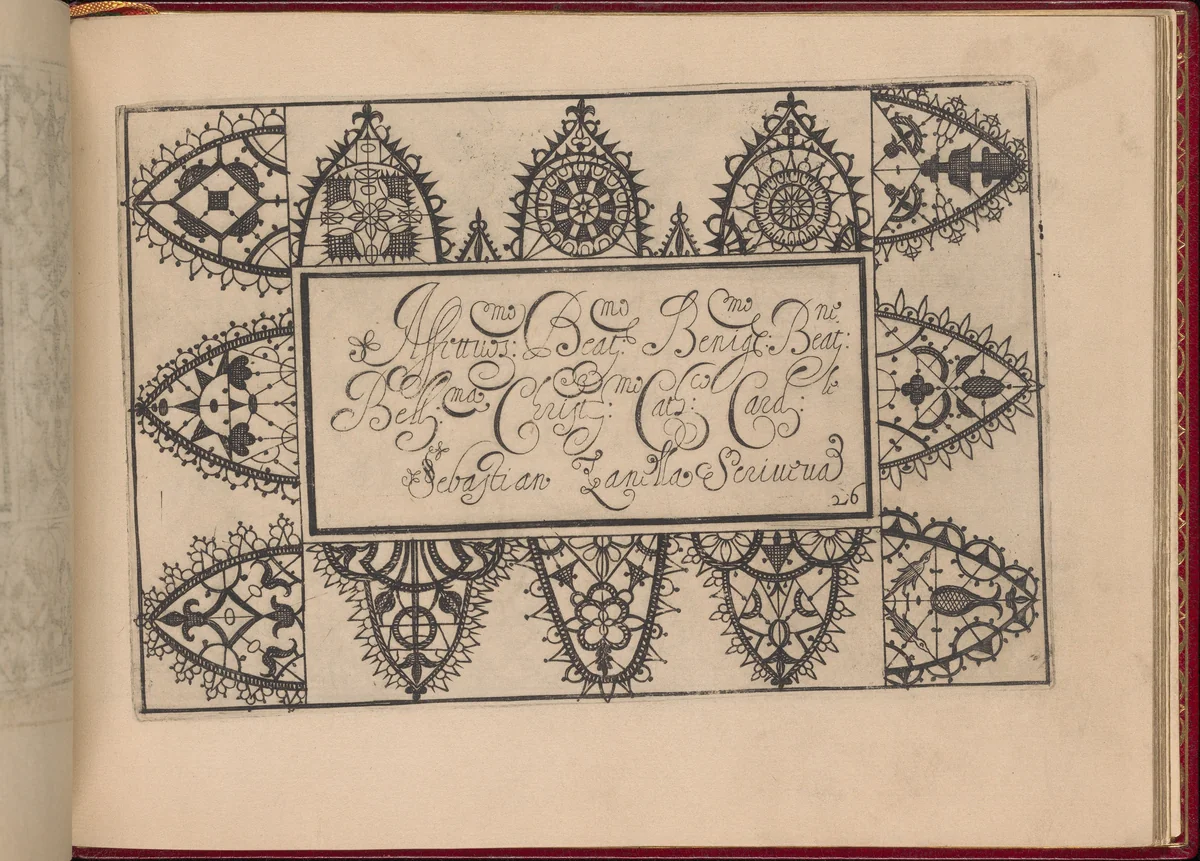 Affittuos:mo Beat:mo Benig:mo Beat:ne
Bell:ma Christ:mo Cath:co Card:le
Sebastian Zanella Scriveva
26